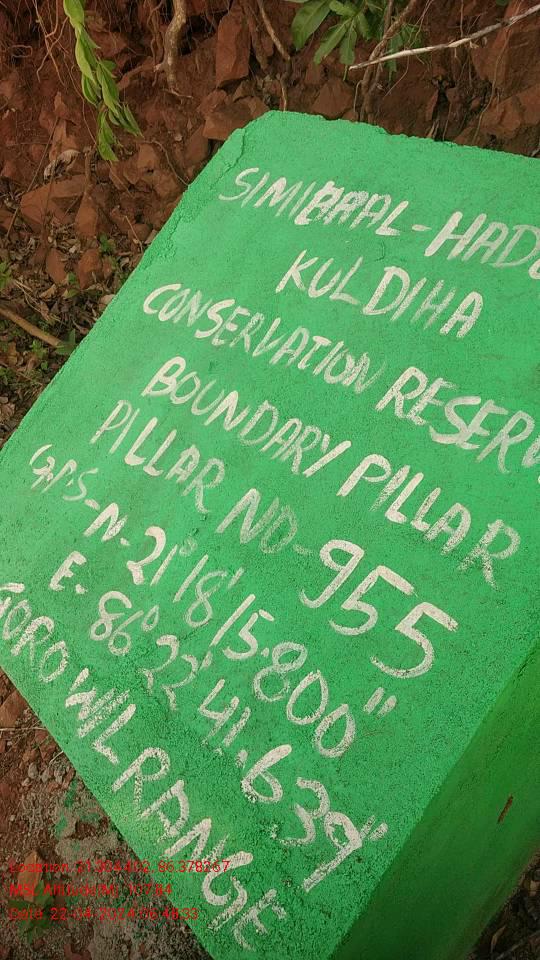 SIMIBAAL-HADG
KULDIHA
CONSERVATION RESERV
BOUNDARY PILLAR
PILLAR NO-955
G.P.S-N-21° 18' 15.800"
E- 86° 22' 41.639"
GOROWIL RANGE
Location: 21.304402, 86.378267
MSL Altitude(M): 107.84
Date: 22-04-2024 06:48:33